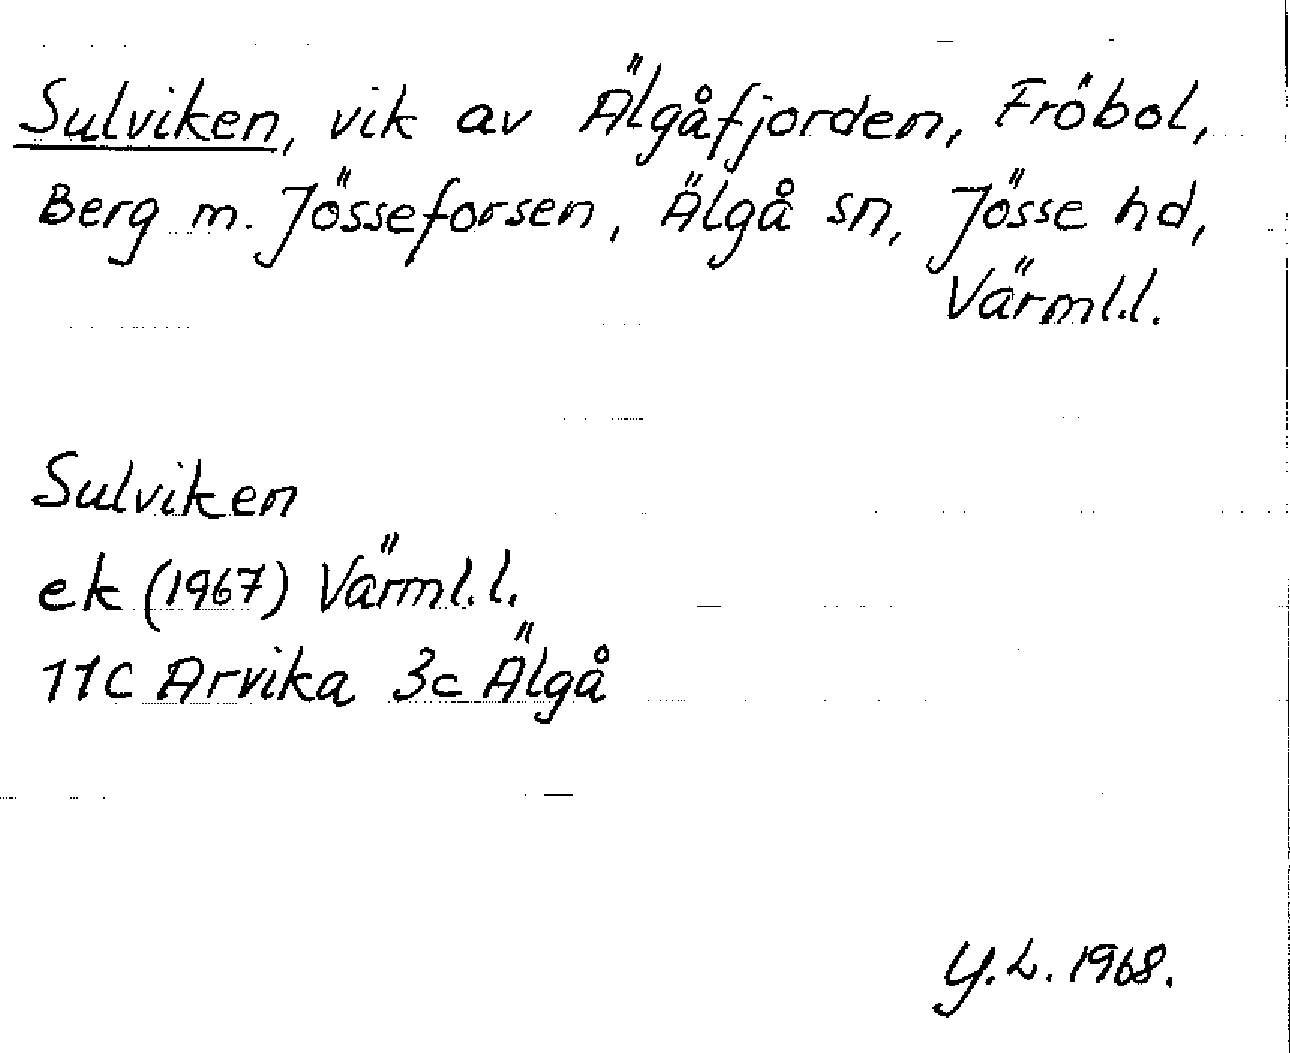 Sulviken, vik av Älgåfjorden, Fröbol,
Berg m. Jösseforsen, Älgå sn, Jösse hd,
Värml.l.
Sulviken
ek (1967) Värml.l.
11C Arvika 3c Älgå
Y.L. 1968.